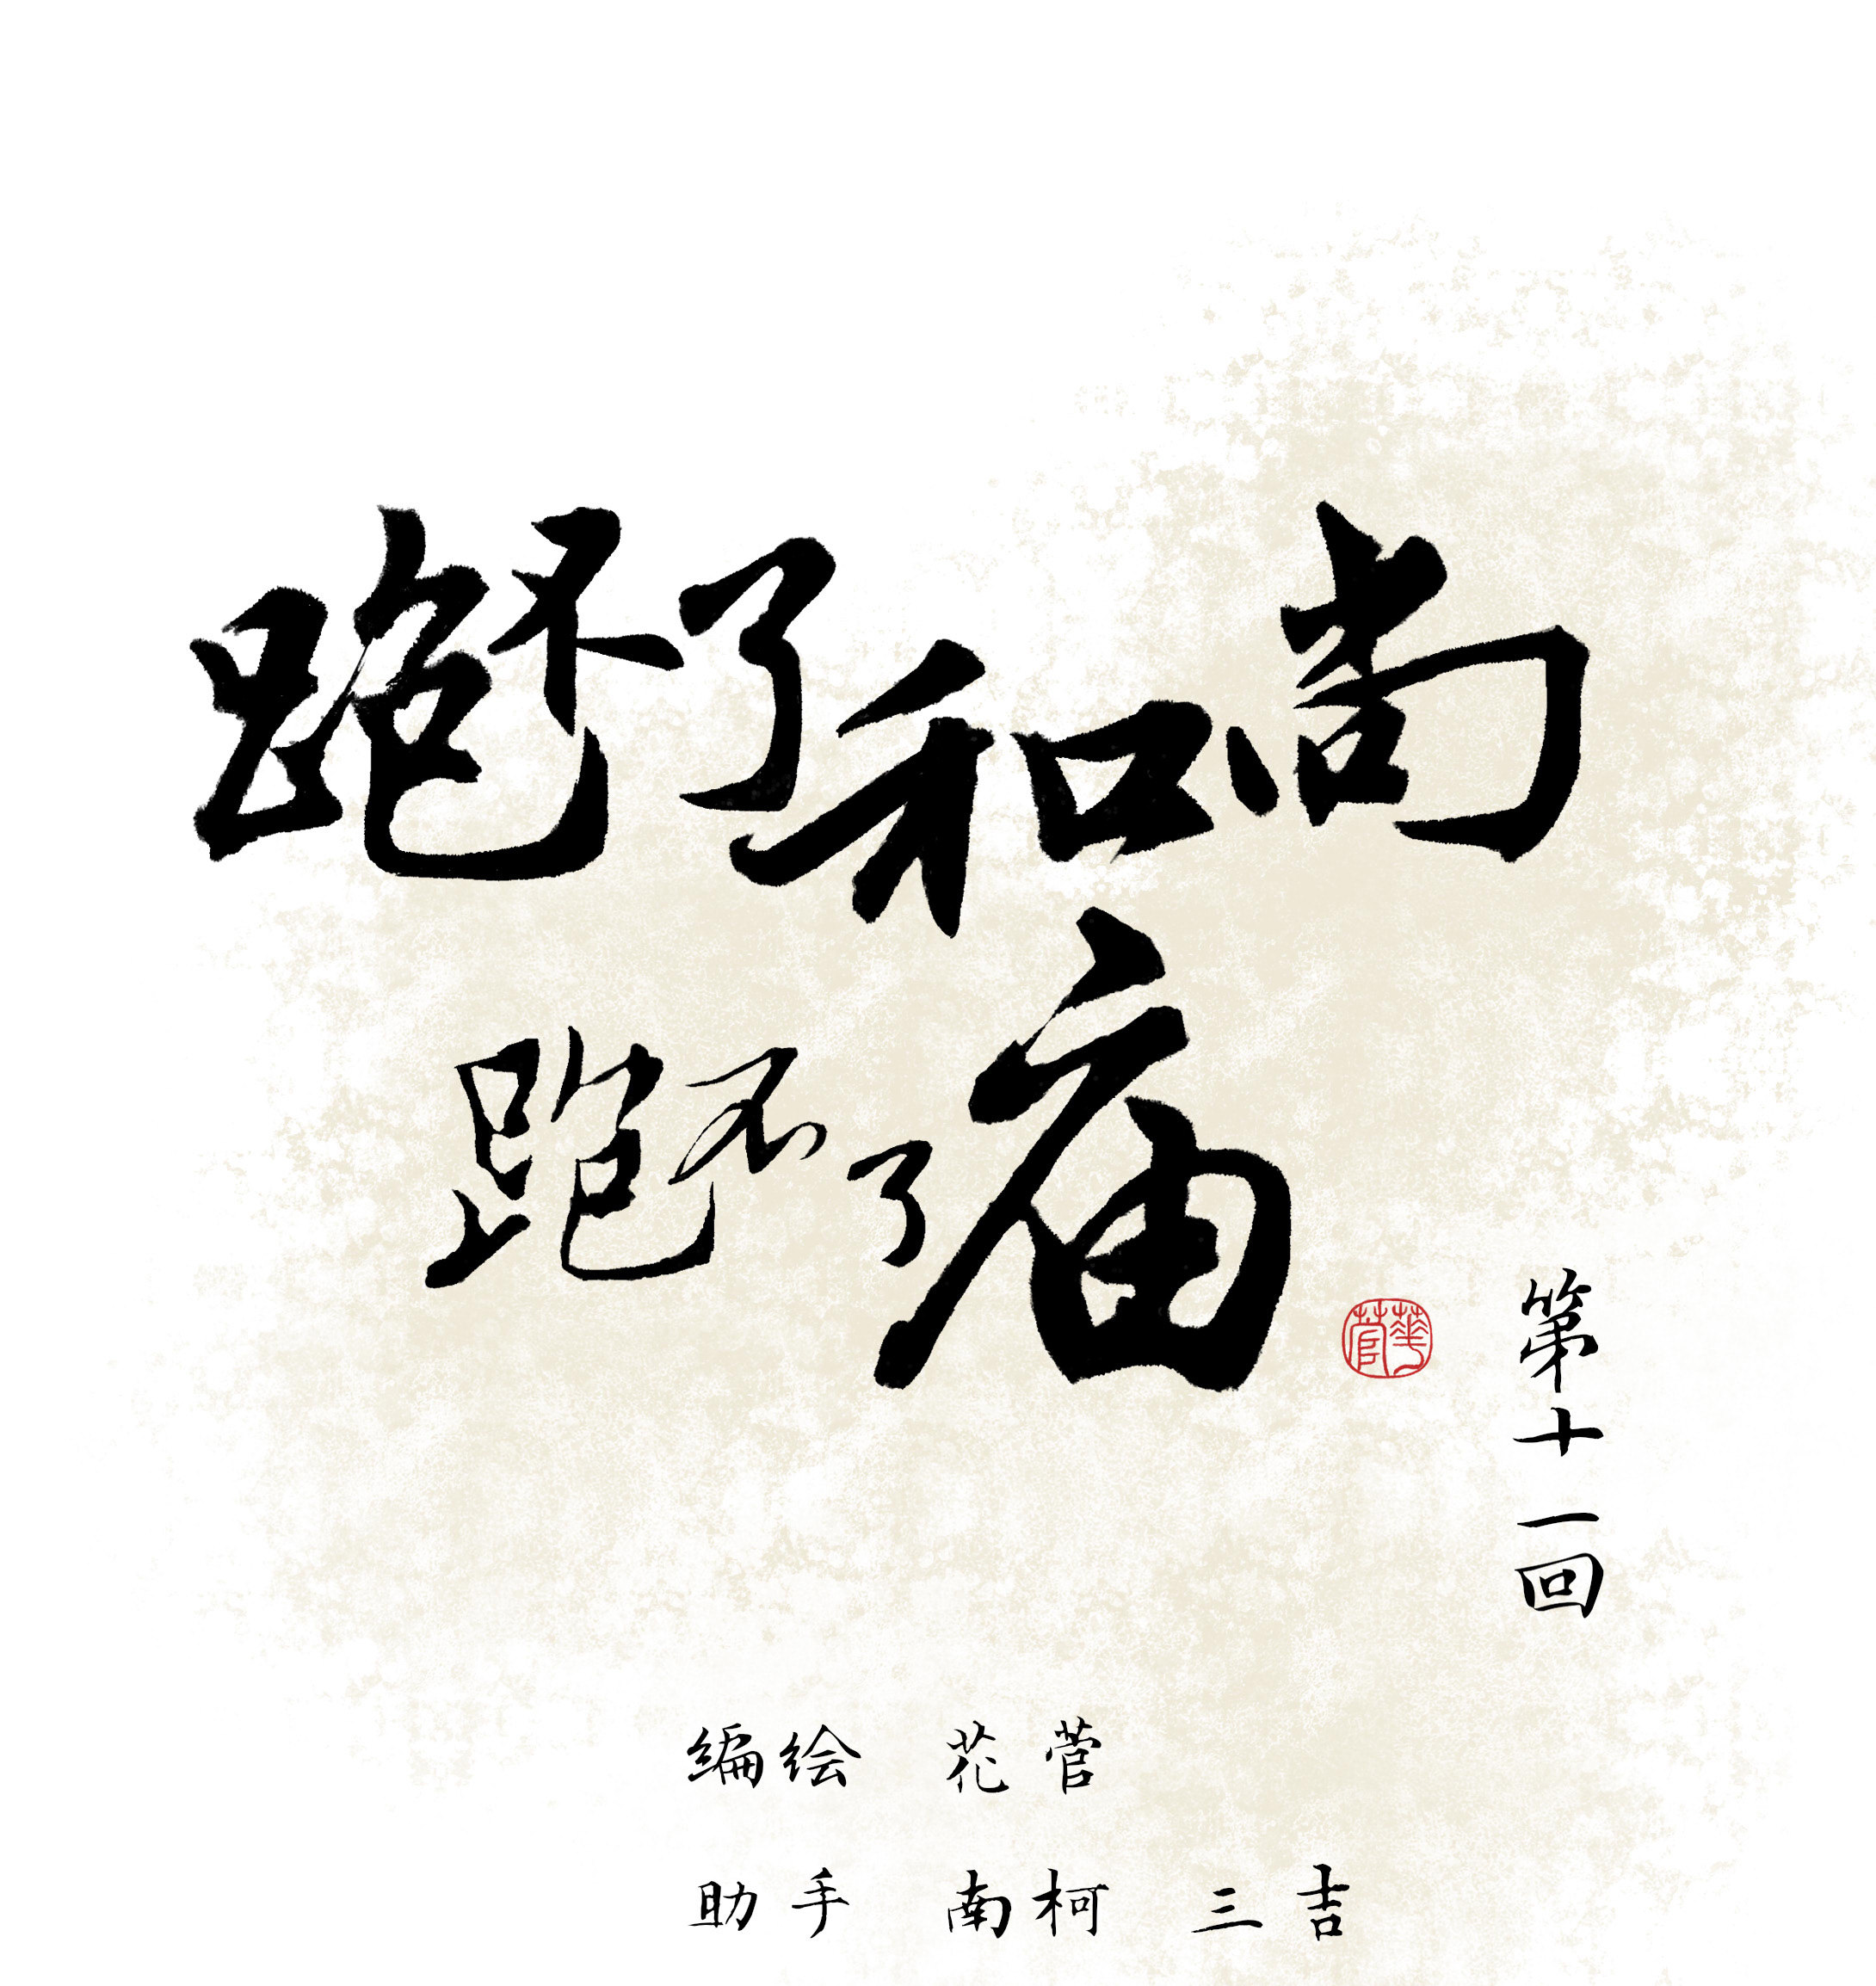 跑不了和尚
跑不了庙
華菅
第十一回
编绘 花菅
助手 南柯 三吉